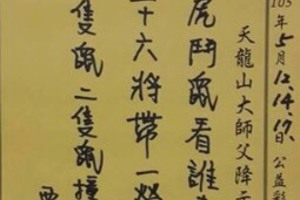 103年5月12.14.17.日 公益彩
天龍山大師父降示
虎鬥鼠看誰
三十六將帶一
隻鼠二隻鼠撞